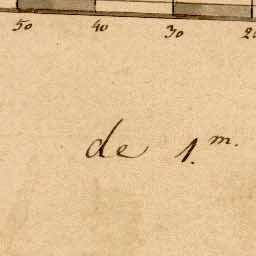 50 40 30 20
de 1.m.